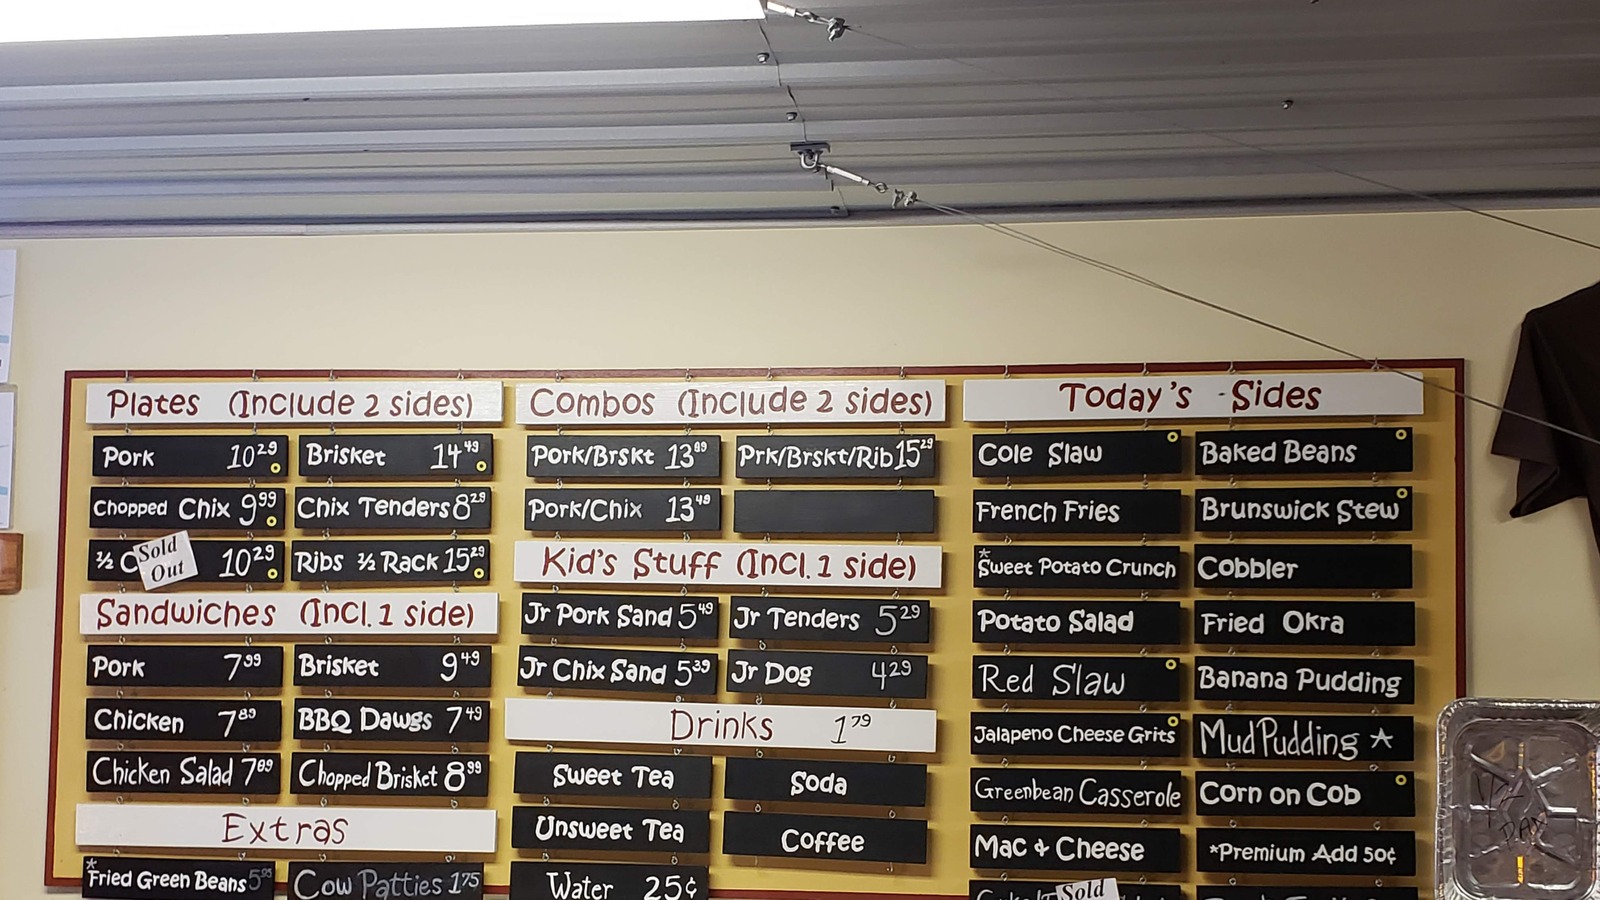 Plates (Include 2 sides)
Pork 10.29
Brisket 14.49
Chopped Chix 9.99
Chix Tenders 8.29
½ C Sold Out 10.29
Ribs ½ Rack 15.29
Sandwiches (Incl. 1 side)
Pork 7.99
Brisket 9.49
Chicken 7.89
BBQ Dawgs 7.49
Chicken Salad 7.89
Chopped Brisket 8.99
Extras
*Fried Green Beans 5.95
Cow Patties 1.75
Combos (Include 2 sides)
Pork/Brskt 13.89
Prk/Brskt/Rib 15.29
Pork/Chix 13.49
Kid's Stuff (Incl. 1 side)
Jr Pork Sand 5.49
Jr Tenders 5.29
Jr Chix Sand 5.39
Jr Dog 4.29
Drinks 1.79
Sweet Tea
Soda
Unsweet Tea
Coffee
Water 25¢
Today's - Sides
Cole Slaw
Baked Beans
French Fries
Brunswick Stew
*Sweet Potato Crunch
Cobbler
Potato Salad
Fried Okra
Red Slaw
Banana Pudding
Jalapeno Cheese Grits
Mud Pudding *
Greenbean Casserole
Corn on Cob
Mac & Cheese
*Premium Add 50¢
Sold